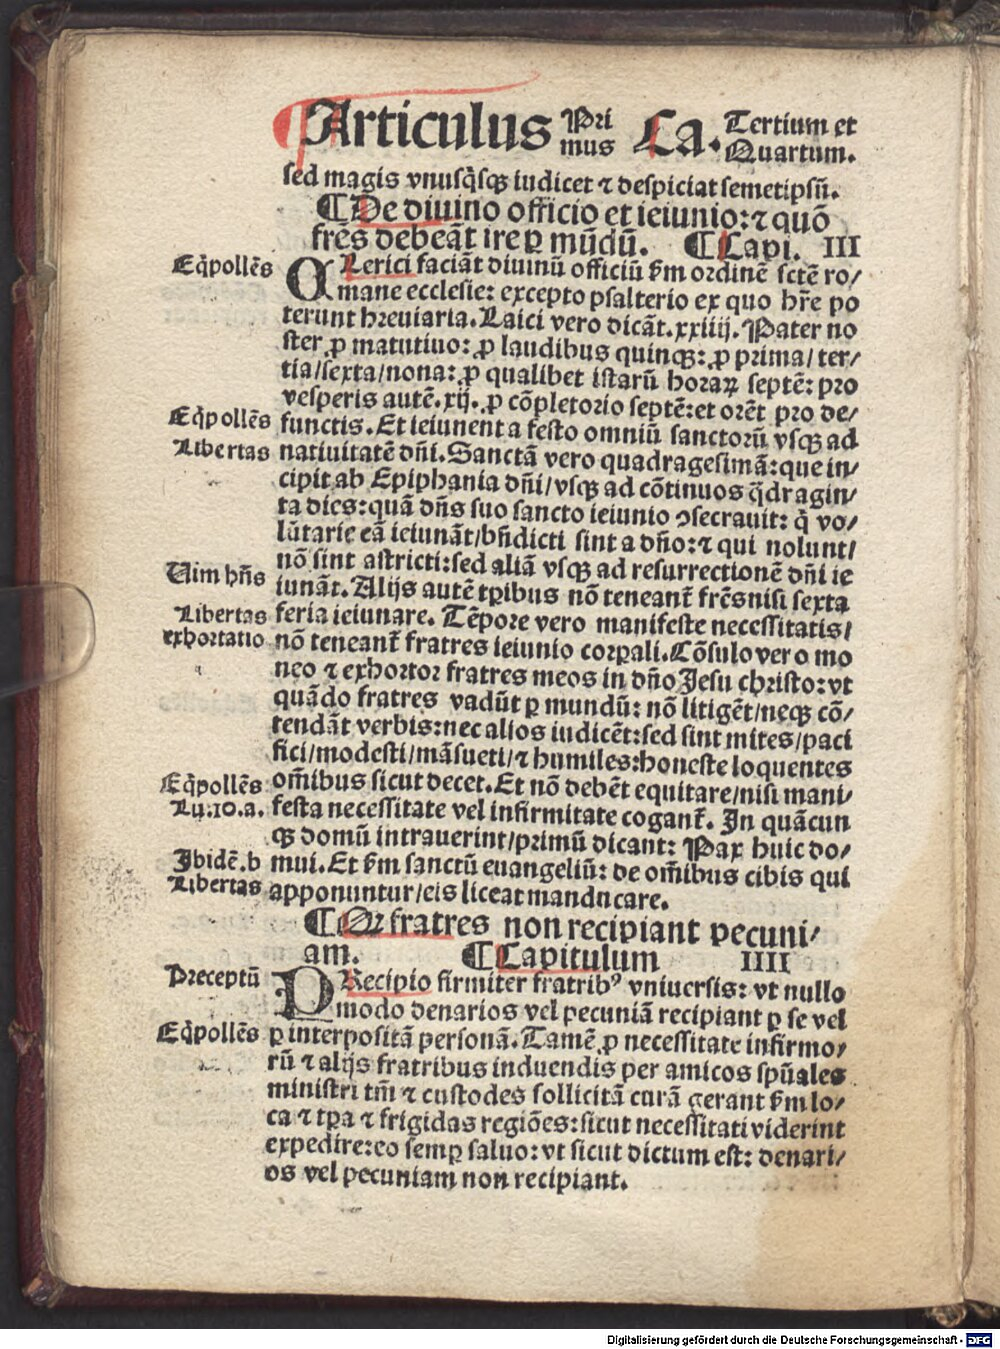 Articulus Pri mus Ca. Tertium et Quartum.
sed magis vnusq̄sqꝫ iudicet ⁊ despiciat semetipsū.
¶ De diuino officio et ieiunio: ⁊ quō
frēs debeāt ire ꝑ mūdū. ¶ Capi. III
Eq̄pollēs
CLerici faciāt diuinū officiū ẜm ordinē sctē ro/
mane ecclesie: excepto psalterio ex quo hr̄e po
terunt breuiaria. Laici vero dicāt .xxiiij. Pater no
ster ꝓ matutino: ꝓ laudibus quinqꝫ: ꝓ prima/ ter/
tia/sexta/nona: ꝓ qualibet istarū horaꝝ septē: pro
vesperis autē .xij. ꝓ cōpletorio septē: et orēt pro de/
Eq̄pollēs
functis. Et ieiunent a festo omniū sanctorū vsqꝫ ad
Libertas
natiuitatē dn̄i. Sanctā vero quadragesimā: que in/
cipit ab Epiphania dn̄i/vsqꝫ ad cōtinuos q̄dragin/
ta dies: quā dn̄s suo sancto ieiunio ↄsecrauit: q̇ vo/
lūtarie eā ieiunāt/bn̄dicti sint a dn̄o: ⁊ qui nolunt/
nō sint astricti: sed aliā vsqꝫ ad resurrectionē dn̄i ie
Uim hn̄s
iunāt. Alijs autē tꝑibus nō teneant̄ frēs nisi sexta
Libertas
feria ieiunare. Tēpore vero manifeste necessitatis/
exhortatio
nō teneant̄ fratres ieiunio corꝑali. Cōsulo vero mo
neo ⁊ exhortor fratres meos in dn̄o Jesu christo: vt
quādo fratres vadūt ꝑ mundū: nō litigēt/neqꝫ cō/
tendāt verbis: nec alios iudicēt: sed sint mites/paci
fici/modesti/māsueti/⁊ humiles: honeste loquentes
Eq̄pollēs
om̄ibus sicut decet. Et nō debēt equitare/nisi mani/
Lu. 10. a.
festa necessitate vel infirmitate cogant̄. In quācun
qꝫ domū intrauerint/primū dicant: Pax huic do/
Ibidē. b
mui. Et ẜm sanctū euangeliū: de om̄ibus cibis qui
Libertas
apponuntur/eis liceat manducare.
¶ Qꝫ fratres non recipiant pecuni/
am. ¶ Capitulum IIII
Preceptū
PRecipio firmiter fratribꝰ vniuersis: vt nullo
modo denarios vel pecuniā recipiant ꝑ se vel
Eq̄pollēs
ꝑ interpositā personā. Tamē ꝓ necessitate infirmo/
rū ⁊ alijs fratribus induendis per amicos spūales
ministri tm̄ ⁊ custodes sollicitā curā gerant ẜm lo/
ca ⁊ tꝑa ⁊ frigidas regiōes: sicut necessitati viderint
expedire: eo semꝑ saluo: vt sicut dictum est: denari/
os vel pecuniam non recipiant.
Digitalisierung gefördert durch die Deutsche Forschungsgemeinschaft - DFG